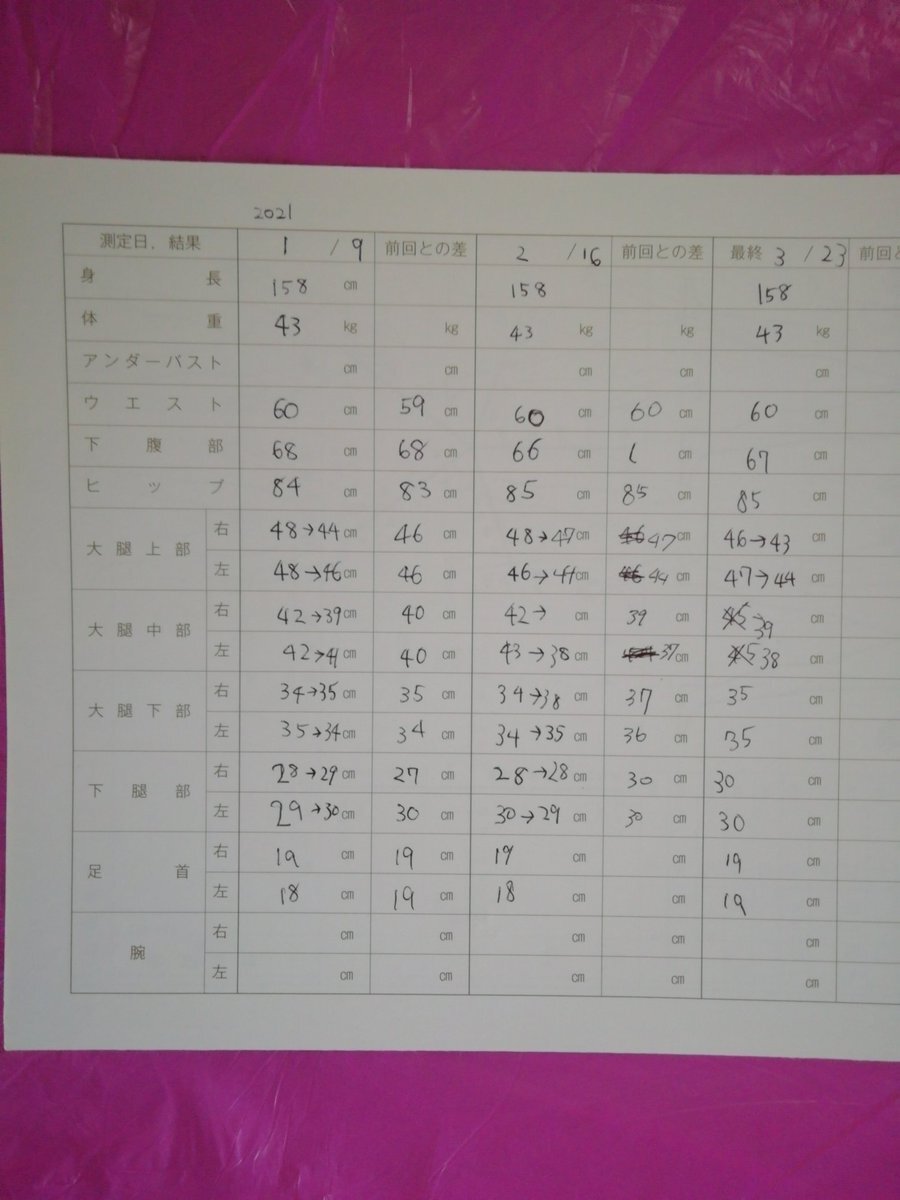 2021
測定日、結果 1 / 9 前回との差 2 / 16 前回との差 最終 3 / 23 前回と
身長 158 cm 158 158
体重 43 kg kg 43 kg kg 43 kg
アンダーバスト cm cm cm cm cm
ウエスト 60 cm 59 cm 60 cm 60 cm 60 cm
下腹部 68 cm 68 cm 66 cm cm 67 cm
ヒップ 84 cm 83 cm 85 cm 85 cm 85 cm
大腿上部 右 48→44cm 46 cm 48→47cm 47cm 46→43 cm
左 48→46cm 46 cm 46→44cm 44cm 47→44 cm
大腿中部 右 42→39cm 40 cm 42→ cm 39 cm →39 cm
左 42→41cm 40 cm 43→38cm 37cm 38 cm
大腿下部 右 34→35cm 35 cm 34→38cm 37 cm 35 cm
左 35→34cm 34 cm 34→35cm 36 cm 35 cm
下腿部 右 28→29cm 27 cm 28→28cm 30 cm 30 cm
左 29→30cm 30 cm 30→29cm 30 cm 30 cm
足首 右 19 cm 19 cm 19 cm cm 19 cm
左 18 cm 19 cm 18 cm cm 19 cm
腕 右 cm cm cm cm cm
左 cm cm cm cm cm